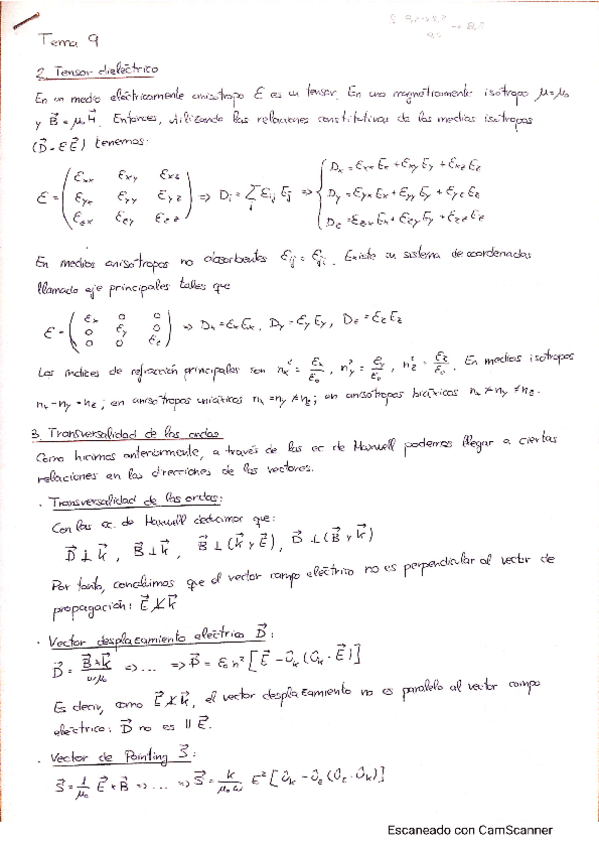 Tema 9
2. Tensor dieléctrico
En un medio eléctricamente anisótropo ε es un tensor. En uno magnéticamente isótropo μ=μ₀
y B⃗ = μ₀H⃗. Entonces, utilizando las relaciones constitutivas de los medios isótropos
(D⃗ = εE⃗) tenemos:
ε = ( εxx εxy εxz ; εyx εyy εyz ; εzx εzy εzz ) ⇒ Di = Σj εij Ej ⇒ { Dx = εxx Ex + εxy Ey + εxz Ez
Dy = εyx Ex + εyy Ey + εyz Ez
Dz = εzx Ex + εzy Ey + εzz Ez
En medios anisótropos no absorbentes εij = εji. Existe un sistema de coordenadas
llamado eje principales tales que
ε = ( εx 0 0 ; 0 εy 0 ; 0 0 εz ) ⇒ Dx = εx Ex, Dy = εy Ey, Dz = εz Ez
Los índices de refracción principales son nx² = εx/ε₀, ny² = εy/ε₀, nz² = εz/ε₀. En medios isótropos
nx = ny = nz; en anisótropos uniáxicos nx = ny ≠ nz; en anisótropos biáxicos nx ≠ ny ≠ nz.
3. Transversalidad de las ondas
Como hicimos anteriormente, a través de las ec de Maxwell podemos llegar a ciertas
relaciones en las direcciones de los vectores.
· Transversalidad de las ondas:
Con las ec. de Maxwell deducimos que:
D⃗ ⊥ k⃗, B⃗ ⊥ k⃗, B⃗ ⊥ (k⃗ y E⃗), D⃗ ⊥ (B⃗ y k⃗)
Por tanto, concluimos que el vector campo eléctrico no es perpendicular al vector de
propagación: E⃗ ⊥̸ k⃗
· Vector desplazamiento eléctrico D⃗:
D⃗ = B⃗×k⃗/ωμ₀ ⇒ ... ⇒ D⃗ = ε₀ n² [E⃗ - ûk (ûk · E⃗)]
Es decir, como E⃗ ⊥̸ k⃗, el vector desplazamiento no es paralelo al vector campo
eléctrico: D⃗ no es || E⃗.
· Vector de Pointing S⃗:
S⃗ = 1/μ₀ E⃗ × B⃗ ⇒ ... ⇒ S⃗ = k/μ₀ω E² [ûk - ûe (ûe · ûk)]
Escaneado con CamScanner